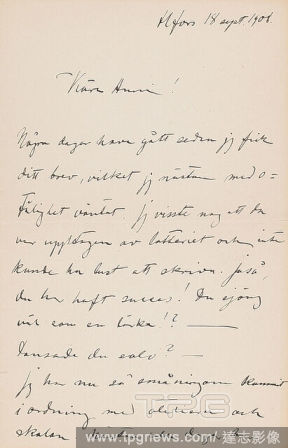 H:fors 18 sept. 1908.
Kära Anni!
Några dagar hava gått sedan jag fick
ditt brev, vilket jag nästan med o=
tålighet väntat. Jag visste nog att du
var upptagen av lotteriet och inte
kunde ha lust att skriva. Jaså,
du har haft succes! Du sjöng
väl som en lärka!?
Dansade du solo?
Jag har nu så småningom kommit
i ordning med och
skolan
TPG
www.tpgnews.com / 達志影像